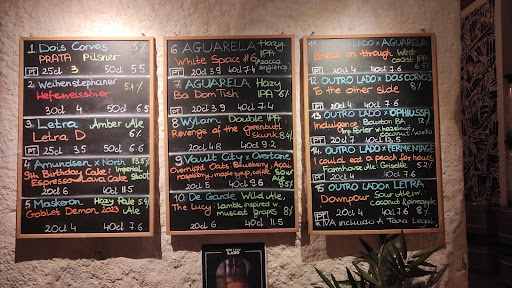 1 Dois Corvos 5%
PRATA Pilsner
PT 25cl 3 50cl 5.5
2 Weihenstephaner 5.4%
Hefeweissbier
30cl 4 50cl 6.5
3 Letra Amber Ale
Letra D 6%
PT 25cl 3.5 50cl 6.5
4 Amundsen x North 13.5%
9th Birthday Cake: Imperial
Espresso Lava Cake Stout
20cl 6 40cl 11.5
5 Maskeron Hazy Pale 5%
Goblet Demon 2023 Ale
PT 20cl 4 40cl 7.6
6 AGUARELA Hazy
White Space #6 IPA
PT 20cl 3.9 40cl 7.4
7 AGUARELA Hazy
Big Dom Tish IPA 6%
PT 20cl 3.9 40cl 7.4
8 Wylam Double IPA
Revenge of the greenbutt
skunk 8.4%
20cl 5 40cl 9.5
9 Vault City x Overtone
Overnight Oats: Blueberry, Acai,
raspberry, maple syrup, coffee Sour
20cl 5 40cl 9.6
10 De Garde Wild Ale,
The Lucy: lambic inspired w
muscat grapes 8%
20cl 6 40cl 11.5
11 OUTRO LADO x AGUARELA
Break on through West
coast IPA
12 OUTRO LADO x DOIS CORVOS
To the other side 8%
13 OUTRO LADO x OPHIUSSA
Indulgence: Bourbon BA
14 OUTRO LADO x FERMENTAGE
could eat a peach for hours
Farmhouse Ale: Grisette
20cl 4 40cl 7.6 5.2%
15 OUTRO LADO x LETRA
Downpour Sour Ale w
coconut & pineapple
PT 20cl 4 40cl 7.6 8%
IVA incluido À Taxa Legal